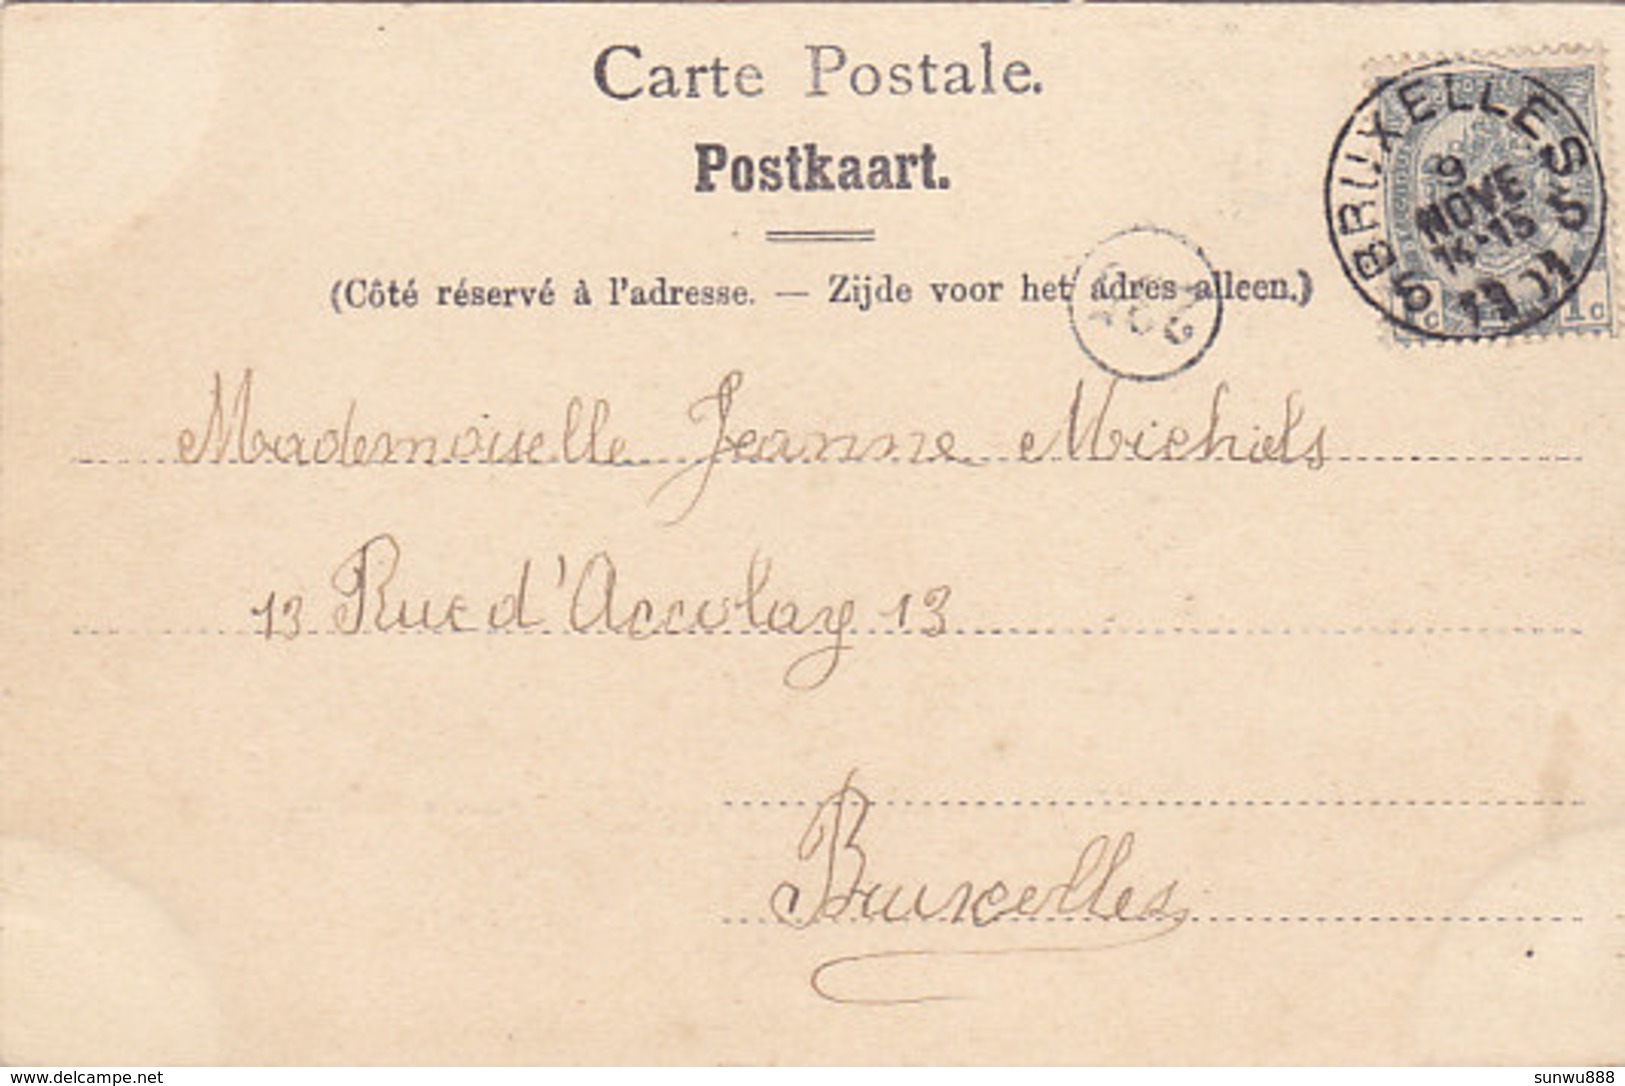 Carte Postale.
Postkaart.
(Côté réservé à l'adresse. — Zijde voor het adres alleen.)
BRUXELLES
9
NOVE
14-15
1c
Mademoiselle Jeanne Michiels
13 Rue d'Accolay 13
Bruxelles
www.delcampe.net
sunwu888